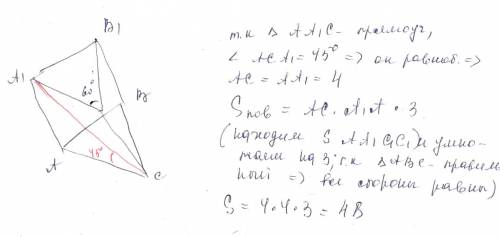 B1
A1
60°
B
A
45°
C
т.к Δ AA1C - прямоуг,
< ACA1 = 45° => он равноб. =>
AC = AA1 = 4
Sпов = AC · A1A · 3
(находим S AA1C1C и умно-
жаем на 3; т.к Δ ABC - правиль
ный => все стороны равны)
S = 4·4·3 = 48